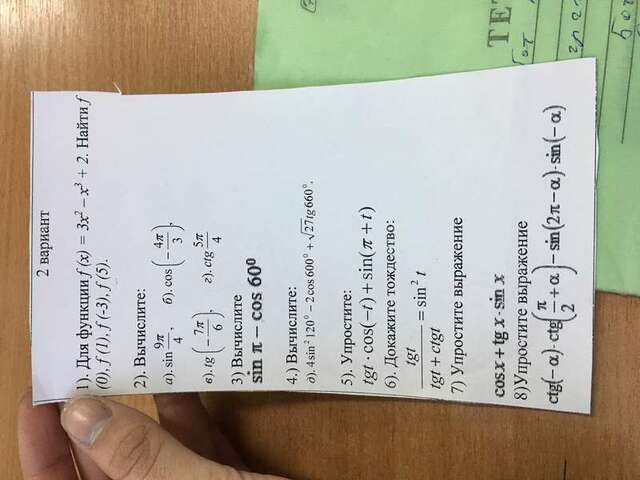 2 вариант
1). Для функции f (x) = 3x² − x³ + 2. Найти f
(0), f (1), f (-3), f (5).
2). Вычислите:
а). sin 9π/4, б). cos (−4π/3),
в). tg (−7π/6), г). ctg 5π/4
3) Вычислите
sin π − cos 60⁰
4.) Вычислите:
д). 4 sin² 120⁰ − 2 cos 600⁰ + √27 tg 660⁰.
5). Упростите:
tgt · cos(−t) + sin(π + t)
6). Докажите тождество:
tgt/(tgt + ctgt) = sin² t
7) Упростите выражение
cos x + tg x · sin x
8)Упростите выражение
ctg(−α) · ctg(π/2 + α) − sin(2π − α) · sin(−α)
ТЕТ